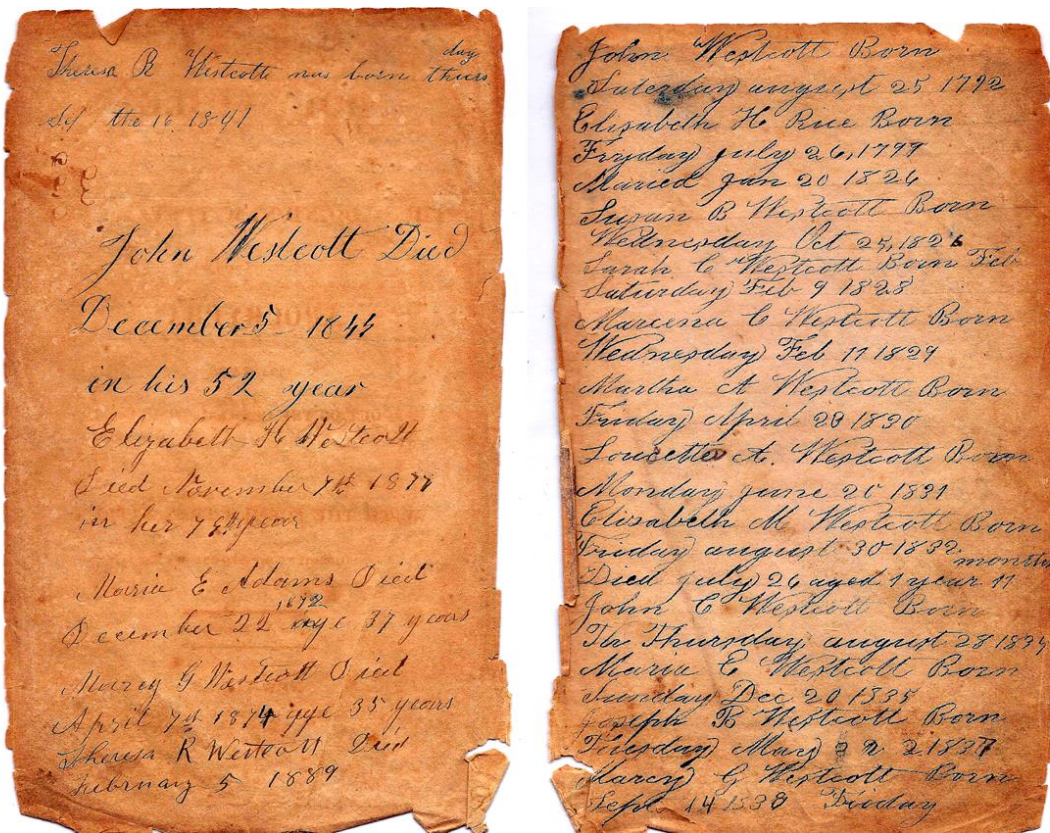 Theresa R Westcott was born thurs
day
Sept the 16, 1841
John Westcott Died
December 5 1844
in his 52 year
Elizabeth H Westcott
Died November 7th 1877
in her 79th year
Maria E Adams Died
December 22 1872 age 37 years
Marcy G Westcott Died
April 7th 1874 age 35 years
Theresa R Westcott Died
February 5 1889
John Westcott Born
Saterday august 25 1792
Elisabeth H Rice Born
Fryday july 26, 1799
Maried Jan 20 1826
Susan B Westcott Born
Wednesday Oct 25, 1826
Sarah C Westcott Born Feb
Saturday Feb 9 1828
Mareena C Westcott Born
Wednesday Feb 11 1829
Martha A Westcott Born
Friday April 23 1830
Loucette A. Westcott Born
Monday june 20 1831
Elisabeth M Westcott Born
Friday august 30 1832
months
Died july 26 aged 1 year 11
John C Westcott Born
Th Thursday august 28 1834
Maria E Westcott Born
Sunday Dec 20 1835
Joseph B Westcott Born
Tuesday May 2 1837
Marcy G Westcott Born
Sept 14 1838 Friday